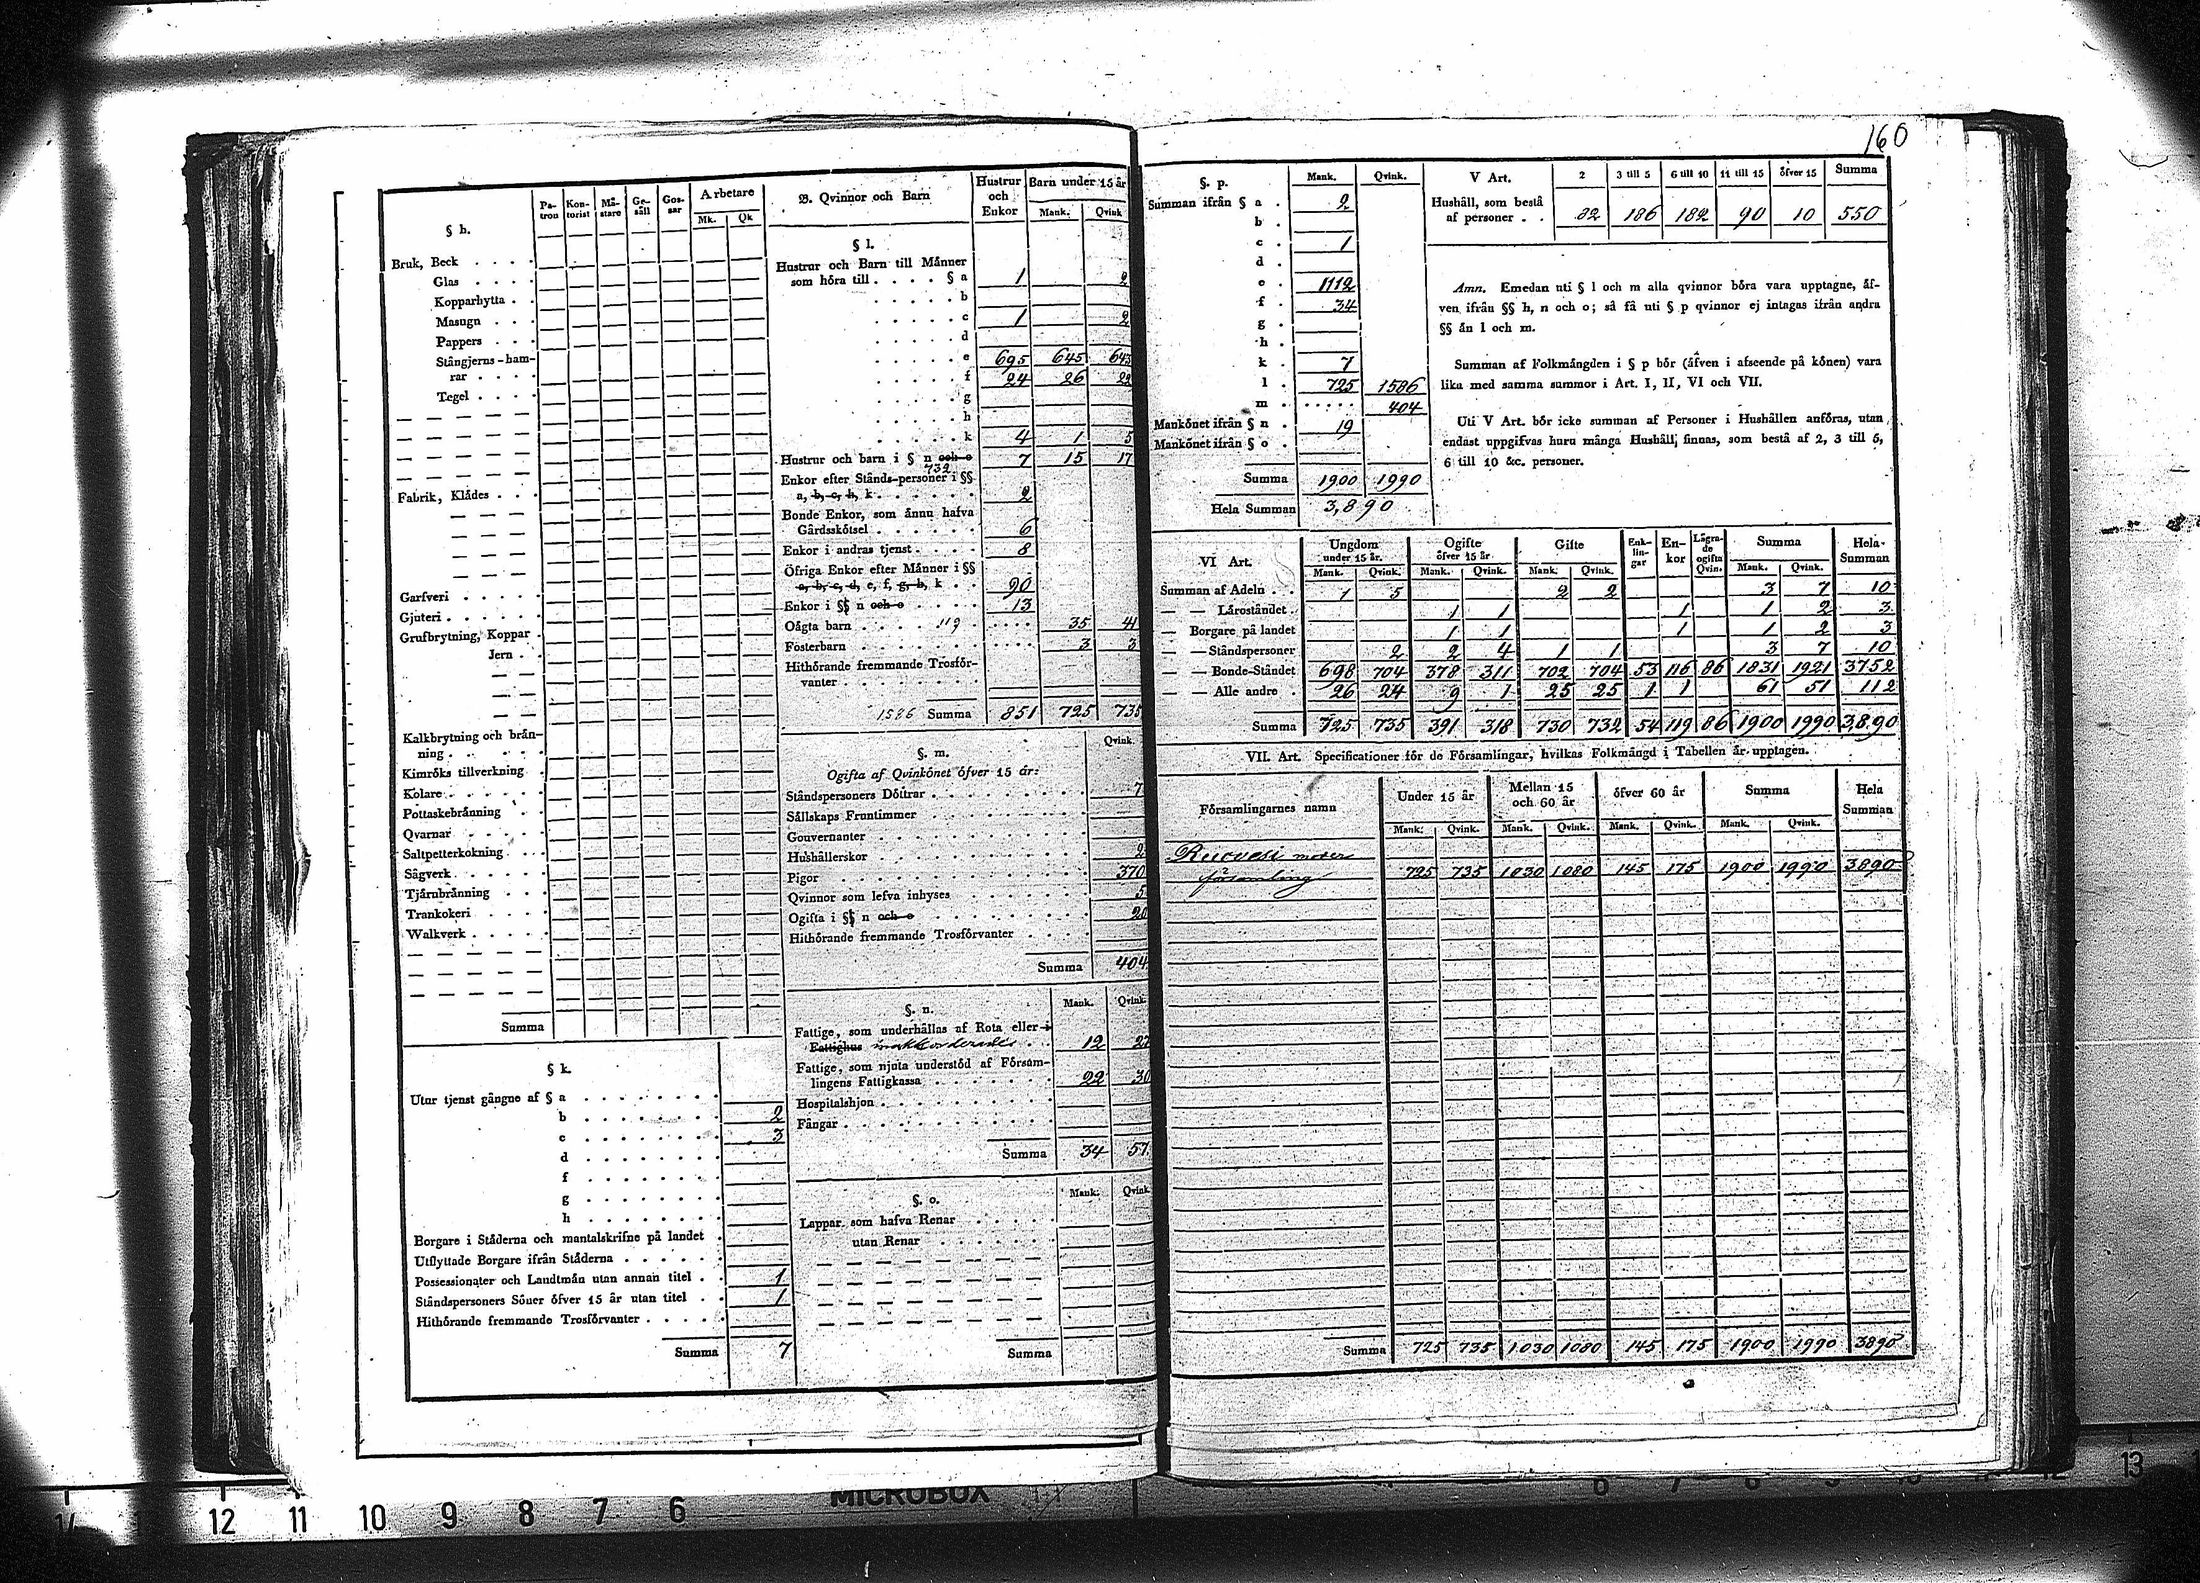 160
§ h.
Pa-tron Kon-torist Må-stare Ge-säll Gos-sar Arbetare
Mk. Qk
Bruk, Beck . . . .
Glas . . . .
Kopparhytta . .
Masugn . . .
Pappers . . .
Stångjerns-ham-
rar . . . .
Tegel . . . .
Fabrik, Klådes . . .
Garfveri . . . . .
Gjuteri . . . . . .
Grufbrytning, Koppar .
Jern . .
Kalkbrytning och brån-
ning . . . . .
Kimröks tillverkning .
Kolare . . . . . .
Pottaskebrånning .
Qvarnar . . . . .
Saltpetterkokning . . .
Sågverk . . . . . .
Tjårnbrånning . . .
Trankokeri . . . .
Walkverk . . . . .
Summa
§ k.
Utur tjenst gångne af § a . . . . . . . .
b . . . . . . . . 2
c . . . . . . . . 3
d . . . . . . . .
f . . . . . . . .
g . . . . . . . .
h . . . . . . . .
Borgare i Ståderna och mantalskrifne på landet .
Utflyttade Borgare ifrån Ståderna . . . . .
Possessionater och Landtmån utan annan titel . . 1
Ståndspersoners Söner öfver 15 år utan titel . . 1
Hithörande fremmande Trosförvanter . . . . .
Summa 7
B. Qvinnor och Barn
Hustrur och Enkor Barn under 15 år
Mank. Qvink
§ l.
Hustrur och Barn till Männer
som höra till . . . . § a 1 2
. . . . . b
. . . . . c 1 2
. . . . . d
. . . . . e 695 645 643
. . . . . f 24 26 22
. . . . . g
. . . . . h
. . . . . k 4 1 5
Hustrur och barn i § n och o 7 15 17
732
Enkor efter Stånds-personer i §§
a, b, c, h, k . . . . . . 2
Bonde Enkor, som ånnu hafva
Gårdsskötsel . . . . . . 6
Enkor i andras tjenst . . . . 8
Öfriga Enkor efter Männer i §§
a, b, c, d, e, f, g, h, k . . 90
Enkor i §§ n och o . . . . . 13
Oågta barn . . . . 119 . . . . . 35 41
Fosterbarn . . . . . . . . . . . 3 3
Hithörande fremmande Trosför-
vanter . . . . . . . .
1586 Summa 851 725 735
§. m.
Qvink.
Ogifta af Qvinkönet öfver 15 år:
Ståndspersoners Döttrar . . . . . . . . . 7
Sållskaps Fruntimmer . . . . . . . . . .
Gouvernanter . . . . . . . . . . . .
Hushållerskor . . . . . . . . . . . . 2
Pigor . . . . . . . . . . . . . . 370
Qvinnor som lefva inhyses . . . . . . . 5
Ogifta i §§ n och o . . . . . . . . . . 20
Hithörande fremmande Trosförvanter . . . .
Summa 404
§. n.
Mank. Qvink.
Fattige, som underhållas af Rota eller i
Fattighus . . 12 27
Fattige, som njuta understöd af Försam-
lingens Fattigkassa . . . . . . . 22 30
Hospitalshjon . . . . . . . . . .
Fångar . . . . . . . . . . . .
Summa 34 57
§. o.
Mank. Qvink.
Lappar som hafva Renar . . . . .
utan Renar . . . . . . .
Summa
§. p.
Mank. Qvink.
Summan ifrån § a . 2
b .
c . 1
d .
e . 1112
f . 34
g .
h .
k . 7
l . 725 1586
m . . . . . . 404
Mankönet ifrån § n . 19
Mankönet ifrån § o .
Summa 1900 1990
Hela Summan 3,890
V Art. 2 3 till 5 6 till 10 11 till 15 öfver 15 Summa
Hushåll, som bestå
af personer . . 82 186 182 90 10 550
Amn. Emedan uti § l och m alla qvinnor böra vara upptagne, åf-
ven ifrån §§ h, n och o; så få uti § p qvinnor ej intagas ifrån andra
§§ ån l och m.
Summan af Folkmångden i § p bör (åfven i afseende på könen) vara
lika med samma summor i Art. I, II, VI och VII.
Uti V Art. bör icke summan af Personer i Hushållen anföras, utan
endast uppgifvas huru många Hushåll, finnas, som bestå af 2, 3 till 5,
6 till 10 &c. personer.
VI Art. Ungdom under 15 år. Ogifte öfver 15 år Gifte Enk-lin-gar En-kor Lågra-de ogifta Qvin. Summa Hela-Summan
Mank. Qvink. Mank. Qvink. Mank. Qvink. Mank. Qvink.
Summan af Adeln . . 1 5 2 2 3 7 10
— — Låroståndet . . 1 1 1 1 2 3
— Borgare på landet 1 1 1 1 2 3
— — Ståndspersoner 2 2 4 1 1 3 7 10
— — Bonde-Ståndet 698 704 378 311 702 704 53 116 86 1831 1921 3752
— — Alle andre . 26 24 9 1 25 25 1 1 61 51 112
Summa 725 735 391 318 730 732 54 119 86 1900 1990 3,890
VII. Art. Specificationer för de Församlingar, hvilkas Folkmångd i Tabellen är upptagen.
Församlingarnes namn Under 15 år Mellan 15 och 60 år öfver 60 år Summa Hela Summan
Mank. Qvink. Mank. Qvink. Mank. Qvink. Mank. Qvink.
Ruovesi moder
församling 725 735 1030 1080 145 175 1900 1990 3890
Summa 725 735 1030 1080 145 175 1900 1990 3890
14 12 11 10 9 8 7 6 MICROBOX 13